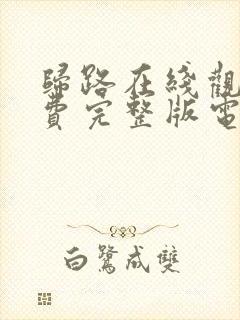 歸路在綫觀
費完整版電
白鷺成雙